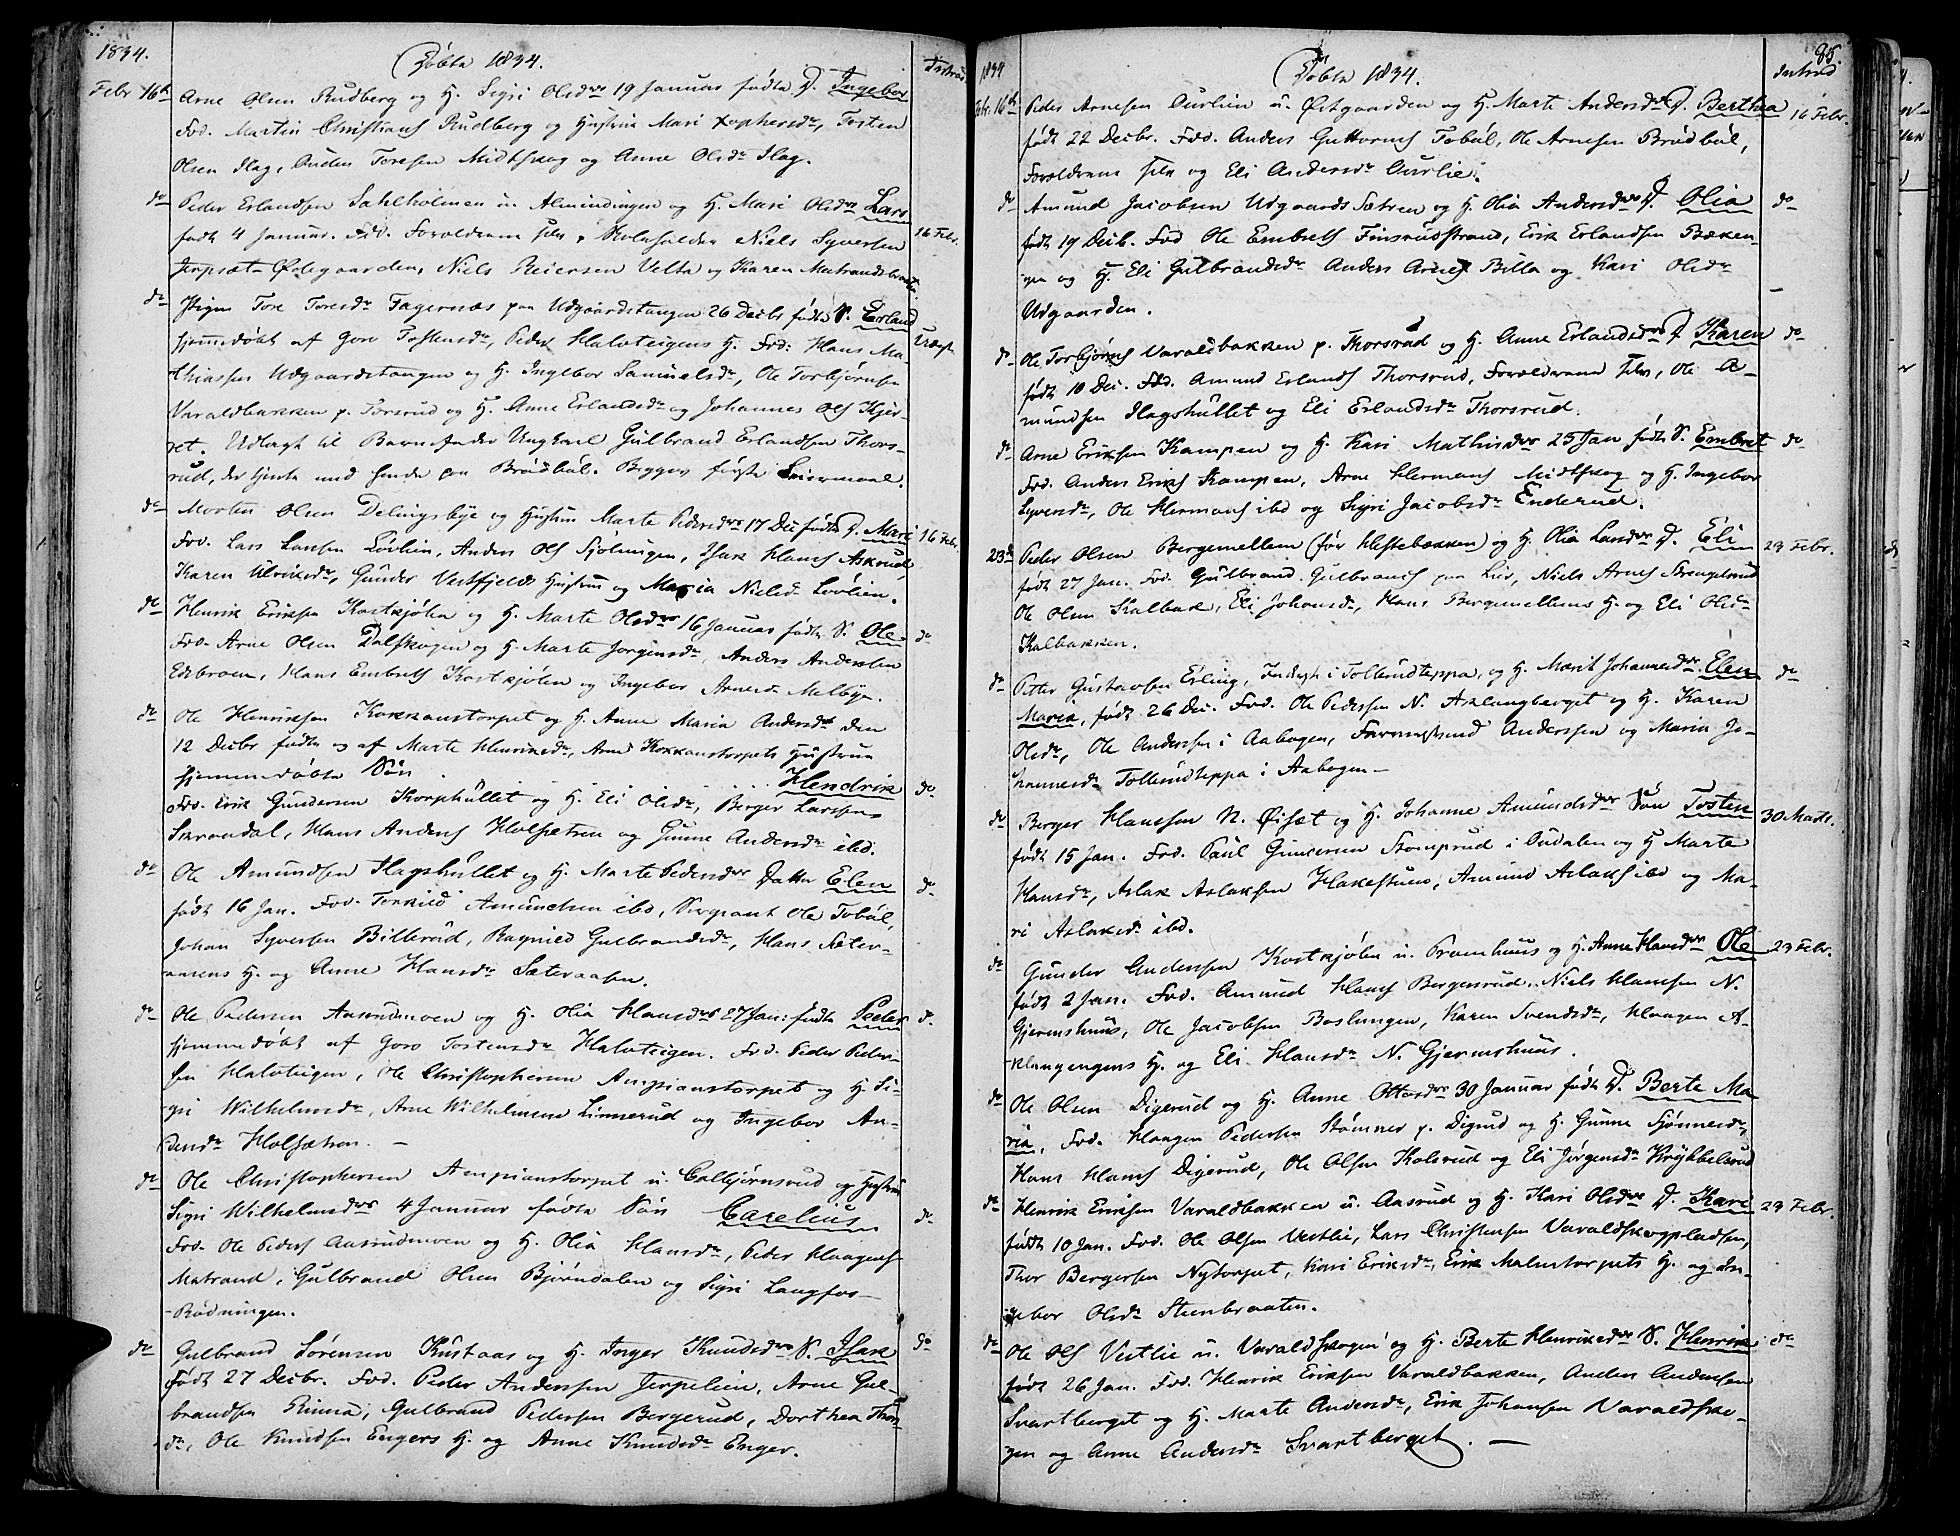 1834.
Døbte 1834.
Introd.
Febr 16de
Arne Olsen Rudberg og H. Sigri Olsdrs 19 Januar fødte D. Ingebor
Fad. Martin Christians Rudberg og Hustrue Mari Xophersdr, Tosten
Olsen Ilag, Anders Toresen Midtskog og Anne Olsdr Ilag.
do Peder Erlandsen Sahlholmen u. Almindingen og H. Mari Olsdrs Lars
født 4 Januar. Fad. Forældrene selv, Niels Syversen 16 Febr.
Jerpset-Ødegaarden, Niels Reiersen Velta og Karen Matrandsbraaten
do Pigen Tore Toresdr Fagernæs paa Udgaardstangen 26 Decbr fødte S. Erland
hjemmedøbt af Goro Tostensdr, Peder Halvteigens H. Fad: Hans Ma-
thiassen Udgaardstangen og H. Ingebor Samuelsdr, Ole Torbjørnsen
Varaldbakken p. Torsrud og H. Anne Erlandsdr og Johannes Ols Kjer-
ret. Udlagt til Barnefader Ungkarl Gulbrand Erlandsen Thors-
rud, der tjente med hende paa Brødbøl. Begges første Leiermaal.
do Morten Olsen Delingsbye og Hustru Marte Pedersdrs 17 Dec fødte D. Mari 16 Febr.
Fad. Lars Larsen Lövlien, Anders Ols Sjölungen, Isak Hans Askrud,
Karen Ulriksdr, Gunder Vestfjelds Hustrue og Maria Nielsd Lövlien.
do Henrik Eriksen Kostkjølen og H. Marte Olsdrs 16 Januar fødte S. Ole do
Fad. Arne Olsen Dalskogen og H. Marte Jørgensdr, Anders Andersen
Edsbroen, Hans Embrets Kostkjølen og Ingebor Arnesd Melbye.
do Ole Henriksen Kokkanstorpet og H. Anne Maria Andersdr den
12 Decbr fødte og af Marte Henriksdr, Arne Kokkanstorpets Hustrue
hjemmedøbte Søn Hendrik do
Fad. Erik Gundersen Korphullet og H. Eli Olsdr, Berger Larssen
Skrondal, Hans Anders Holsætren og Gunne Andersdr ibd.
do Ole Amundsen Flagshullet og H. Marte Pedersdrs Datter Elen do
født 16 Jan. Fad. Torkild Amundsen ibd, Sergeant Ole Tobøl,
Johan Syversen Billerud, Ragnild Gulbrandsdr, Hans Sæter-
aasens H. og Anne Hansdr Sæteraasen.
do Ole Pedersen Aasrudmoen og H. Olia Hansdrs 27 Jan: fødte Peder do
hjemmedøbt af Goro Tostensdr Halvteigen. Fad. Peder Peder-
sen Halvteigen, Ole Christophersen Ampianstorpet og H. Si-
gri Wilhelmsdr, Arne Wilhelmsens Linnerud og Ingebor An-
dersdr Holsætren. —
do Ole Christophersen Ampianstorpet u. Colbjørnsrud og Hustrue
Sigri Wilhelmsdrs 4 Januar fødte Søn Carelius do
Fad. Ole Peders Aasrudmoen og H. Olia Hansdr, Peder Haagens
Matrand, Gulbrand Olsen Bjørndalen og Sigri Langfos-
Rødningen.
do Gulbrand Sørensen Kustaas og H. Inger Knudsdrs S. Isak do
født 27 Decbr. Fad. Peder Anderssen Jerpelien, Arne Gul-
brandsen Rinna, Gulbrand Pedersen Bergerud, Dorthea Thors-
dr, Ole Knudsen Engers H. og Anne Knudsdr Enger.
1834
Døbte 1834.
95.
Introd
Febr. 16de Peder Arnesen Aurlien u. Østgaarden og H. Marte Andersdrs D. Berthea 16 Febr.
født 22 Decbr. Fad. Anders Guttorms Tobøl, Ole Arnesen Brødbøl,
Forældrene selv og Eli Andersdr Aurlie.
do Amund Jacobsen Udgaards Sætren og H. Olia Andersdrs D. Olia do
født 19 Decb. Fad Ole Embrets Finsrudstrand, Erik Erlandsen Bæken-
gen og H. Eli Gulbrandsdr Anders Arnes Billa og Kari Olsdr
Udgaarden.
do Ole Torbjørns Varaldbakken p. Thorsrud og H. Anne Erlandsdrs D Karen do
født 10 Dec. Fad. Amund Erlands Thorsrud, Forældrene selv, Ole A-
mundsen Ilagshullet og Eli Erlandsdr Thorsrud.
do Arne Eriksen Kampen og H. Kari Mathisdrs 25 Jan fødte S. Embret do
Fad. Anders Eriks Kampen, Arne Hermans Midtskog og H. Ingebor
Syversdr, Ole Hermans ibd og Sigri Jacobsdr Enderud.
23de Peder Olsen Bergemellem (før Hestebækken) og H. Olia Larsdrs D. Eli 23 Febr.
født 27 Jan. Fad. Gulbrand Gulbrands paa Lier, Niels Arnes Strengelsrud
Ole Olsen Kalbak, Eli Johansdr, Hans Bergemellems H. og Eli Olsdr
Kalbakken.
do Petter Gustavsen Erling, Inderst i Tollerudteppa, og H. Marit Johannesdrs Elen do
Maria, født 26 Dec. Fad. Ole Pedersen N. Aslangberget og H. Karen
Olsdr, Ole Andersen i Aabogen, Anderssen og Maria Jo-
hannesdr Tollerudteppa i Aabogen —
do Berger Hanssen N. Øiset og H. Johanne Amundsdrs Søn Tosten 30 Marts.
født 15 Jan. Fad. Paul Gundersen Stomprud i Oudalen og H Marte
Hansdr, Aslak Aslaksen Hakestuen, Amund Aslaks ibd og Ma-
ri Aslaksdr ibd.
do Gunder Andersen Kostkjølen u. Pramhuus og H. Anne Hansdrs Ole 23 Febr.
født 2 Jan. Fad. Amund Hans Bergersrud, Niels Hansen N.
Gjermshuus, Ole Jacobsen Baslungen, Karen Svendsdr, Haagen A-
klangengens H. og Eli Hansdr N. Gjermshuus.
do Ole Olsen Digerud og H. Anne Ottersdrs 30 Januar fødte D. Berte Ma
ria. Fad. Haagen Pedersen Stømner p. Digerud og H. Gunne Sjønnesdr,
Hans Hans Digerud, Ole Olsen Kolsrud og Eli Jørgensdr Krykkelsrud
do Henrik Eriksen Varaldbakken u. Aasrud og H. Kari Olsdrs D. Kari 23 Febr.
født 10 Jan. Fad. Ole Olsen Vestlie, Lars Christensen Varaldskogpladsen,
Thor Bergersen Nytorpet, Kari Eriksdr, Erik Malmtorpets H. og In-
gebor Olsdr Steenbraaten.
do Ole Ols Vestlie u. Varaldskogen og H. Berte Henriksdrs S. Henrik do
født 26 Jan. Fad. Henrik Eriksen Varaldbakken, Anders Andersen
Svartberget og H. Marte Andersdr, Erik Johansen Varaldsko-
gen og Anne Andersdr Svartberget. —